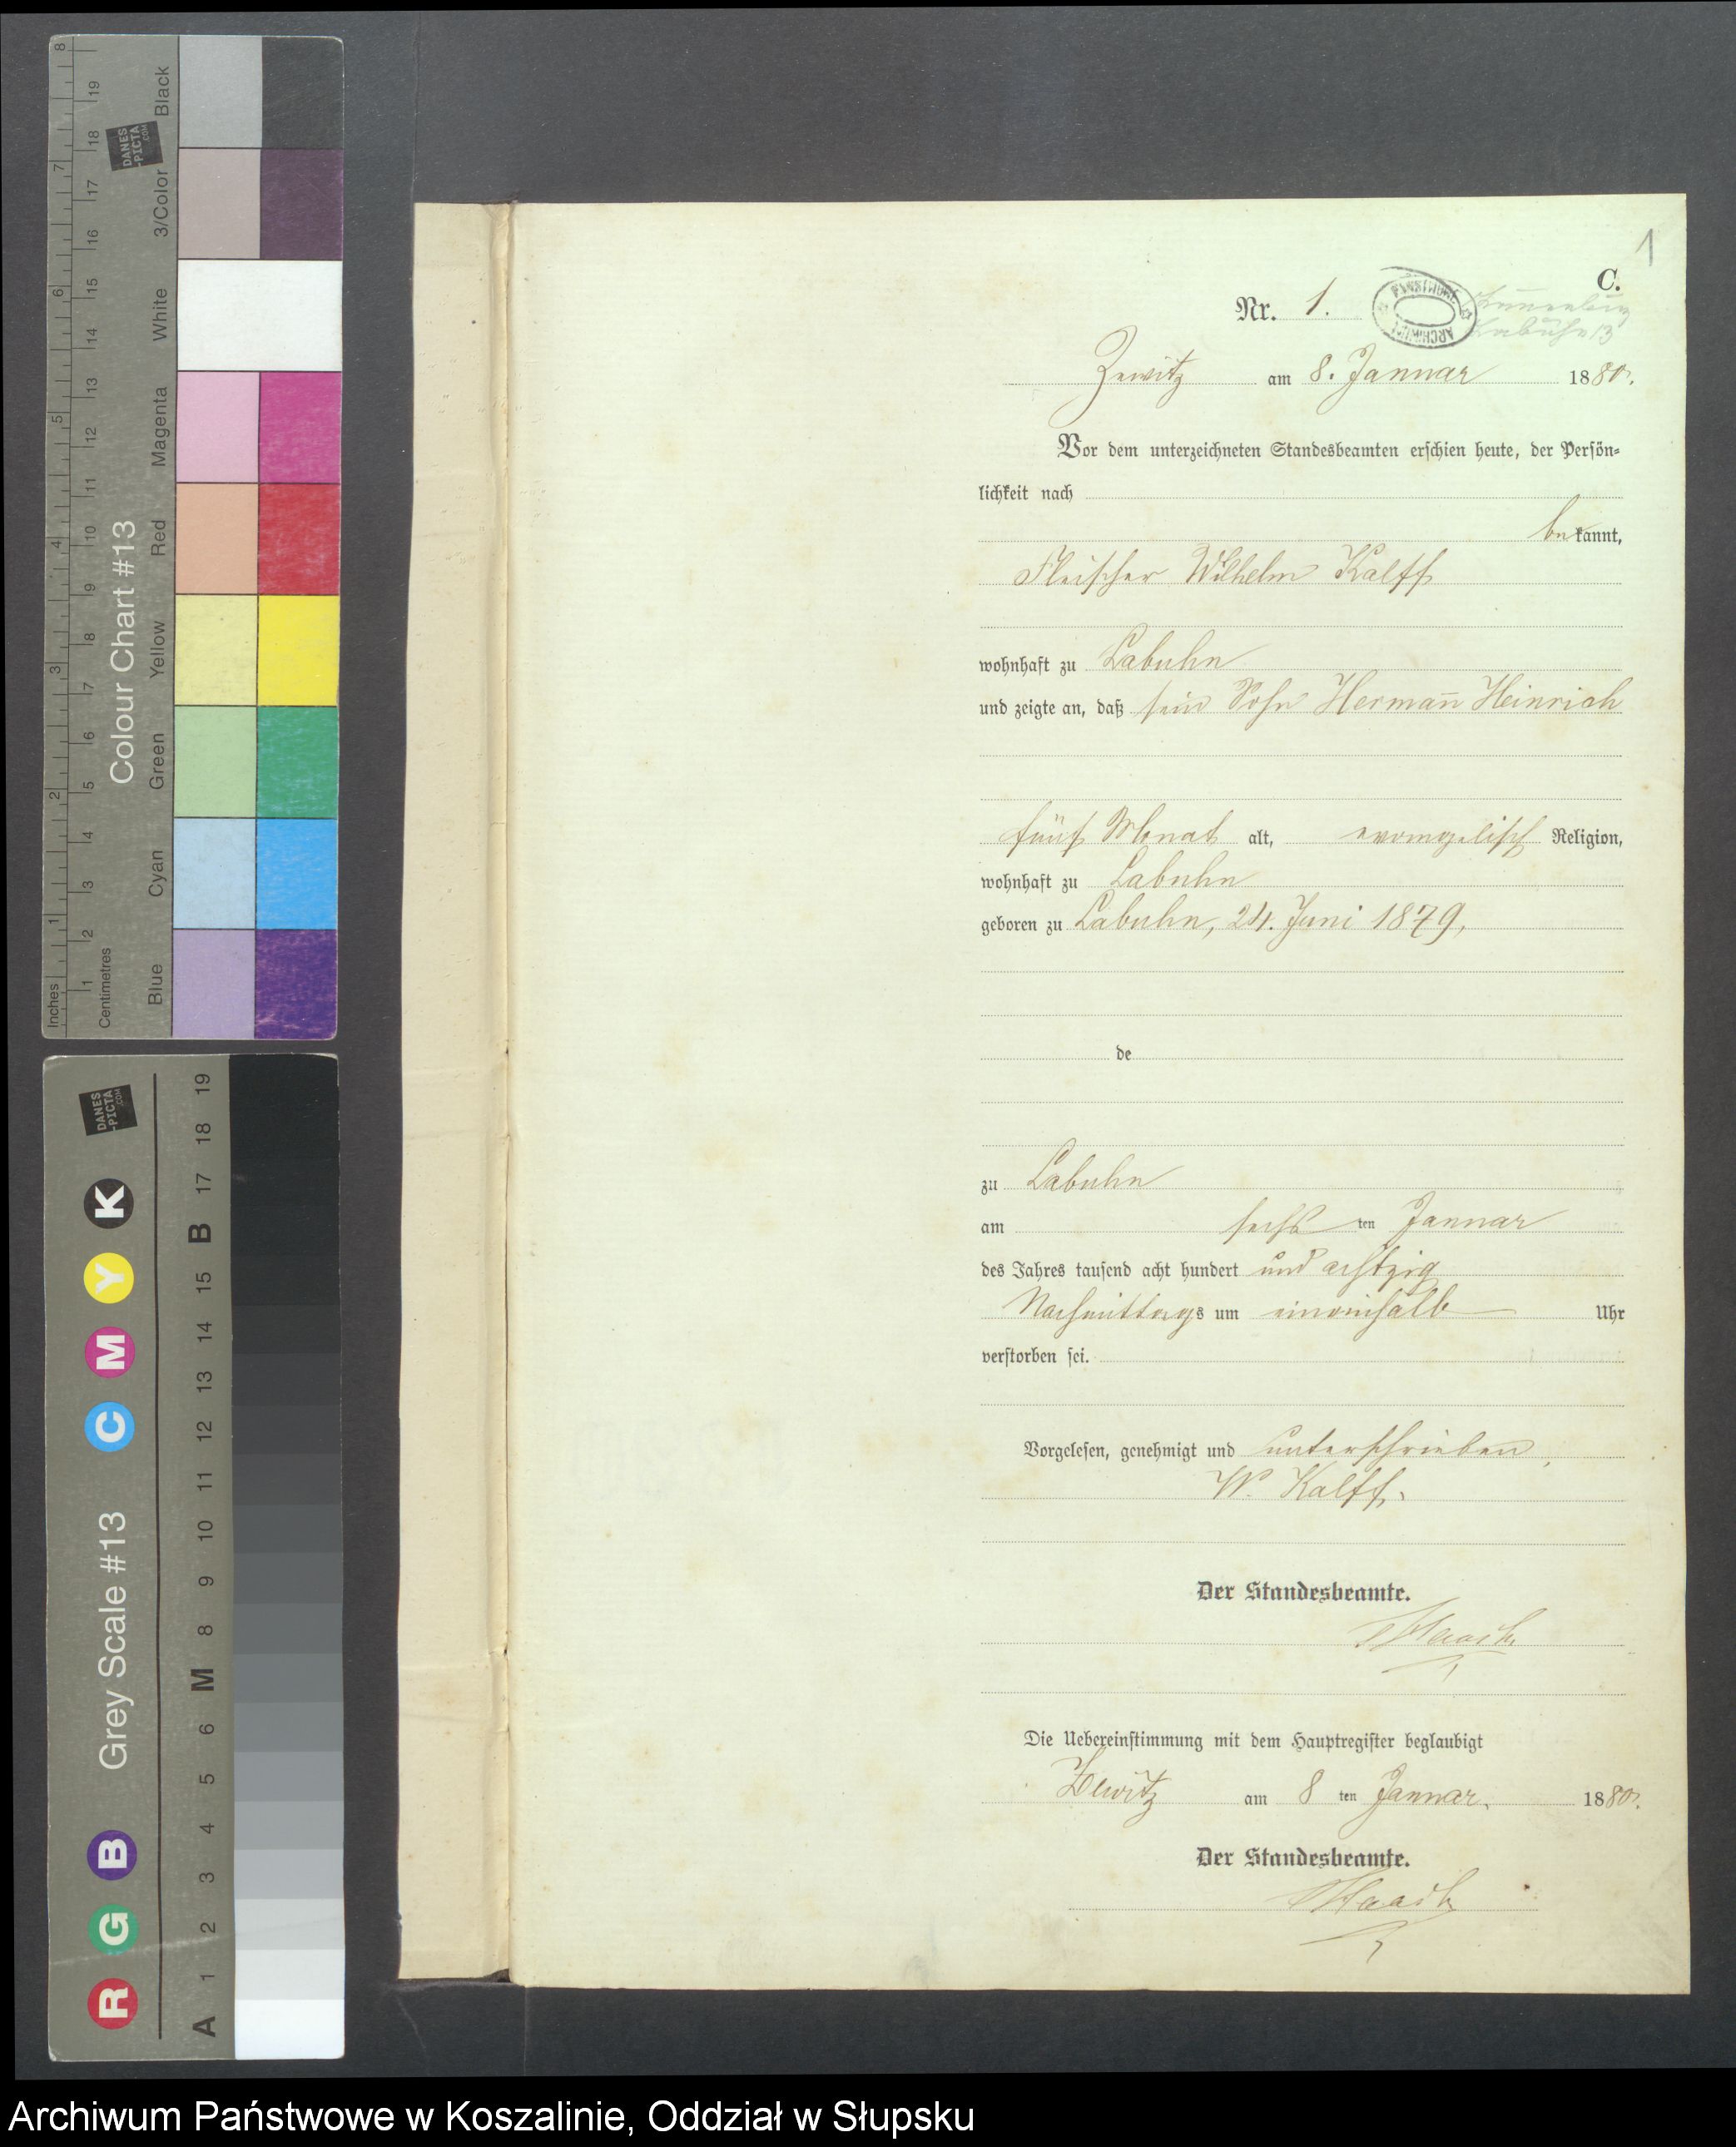 8
7
6
5
4
3
2
1
Inches
19
18
17
16
15
14
13
12
11
10
9
8
7
6
5
4
3
2
1
Centimetres
Colour Chart #13
DANES
-PICTA
.COM
Black
3/Color
White
Magenta
Red
Yellow
Green
Cyan
Blue
DANES
-PICTA
.COM
Grey Scale #13
R G B C M Y K
A 1 2 3 4 5 6 M 8 9 10 11 12 13 14 15 B 17 18 19
1
C.
Nr. 1.
ARCHIWUM
Labuhn 13
Zewitz am 8. Januar 1880.
Vor dem unterzeichneten Standesbeamten erschien heute, der Persön-
lichkeit nach
bekannt,
Fleischer Wilhelm Kalff
wohnhaft zu Labuhn
und zeigte an, daß sein Sohn Hermann̄ Heinrich
fünf Monat alt, evangelisch Religion,
wohnhaft zu Labuhn
geboren zu Labuhn, 24. Juni 1879,
de
zu Labuhn
am sechs ten Januar
des Jahres tausend acht hundert und achtzig
Nachmittags um eineinhalb Uhr
verstorben sei.
Vorgelesen, genehmigt und unterschrieben,
W. Kalff.
Der Standesbeamte.
Die Uebereinstimmung mit dem Hauptregister beglaubigt
Zewitz am 8 ten Januar. 1880.
Der Standesbeamte.
Archiwum Państwowe w Koszalinie, Oddział w Słupsku